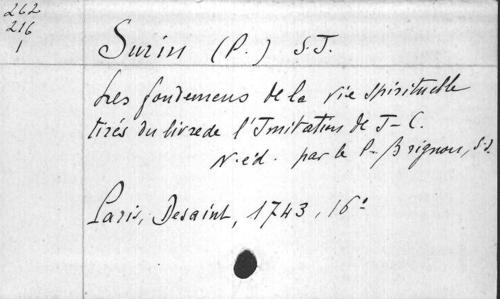 262
216
1
Surin (P.) S.J.
Les fondemens de la vie spirituelle
tirés du livre de l'Imitation de J-C.
N. éd. par le P. Brignon, S.J.
Paris, Desaint, 1743, 16°